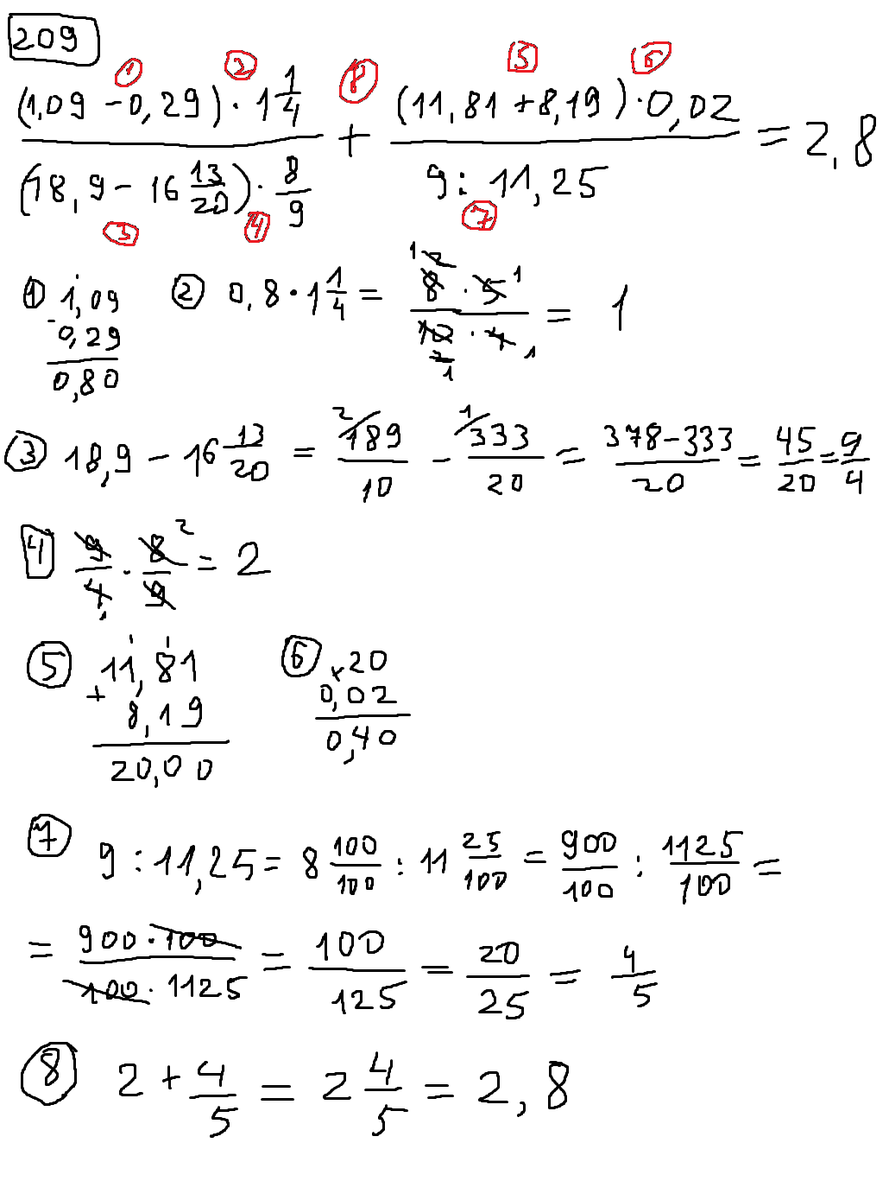 209
① ② ⑧ 5 ⑥
(1,09 - 0,29) · 1 1/4 / (18,9 - 16 13/20) · 8/9 + (11,81 + 8,19) · 0,02 / 9 : 11,25 = 2,8
③ ④ ⑦
① 1,09 - 0,29 = 0,80 ② 0,8 · 1 1/4 = 8 · 5 / 10 · 4 = 1
③ 18,9 - 16 13/20 = 189/10 - 333/20 = 378-333/20 = 45/20 = 9/4
4 9/4 · 8/9 = 2
⑤ 11,81 + 8,19 = 20,00 ⑥ 20 × 0,02 = 0,40
⑦ 9 : 11,25 = 8 100/100 : 11 25/100 = 900/100 : 1125/100 =
= 900 · 100 / 100 · 1125 = 100/125 = 20/25 = 4/5
⑧ 2 + 4/5 = 2 4/5 = 2,8